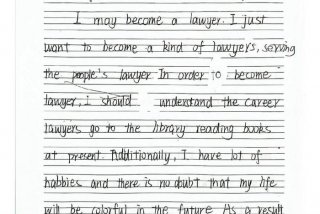 I may become a lawyer. I just
want to become a kind of lawyers, serving
the people's lawyer In order to become
lawyer, i should understand the career
lawyers go to the library reading books
at present. Additionally, I have lot of
habbies and there is no doubt that my life
will be colorful in the future As a result